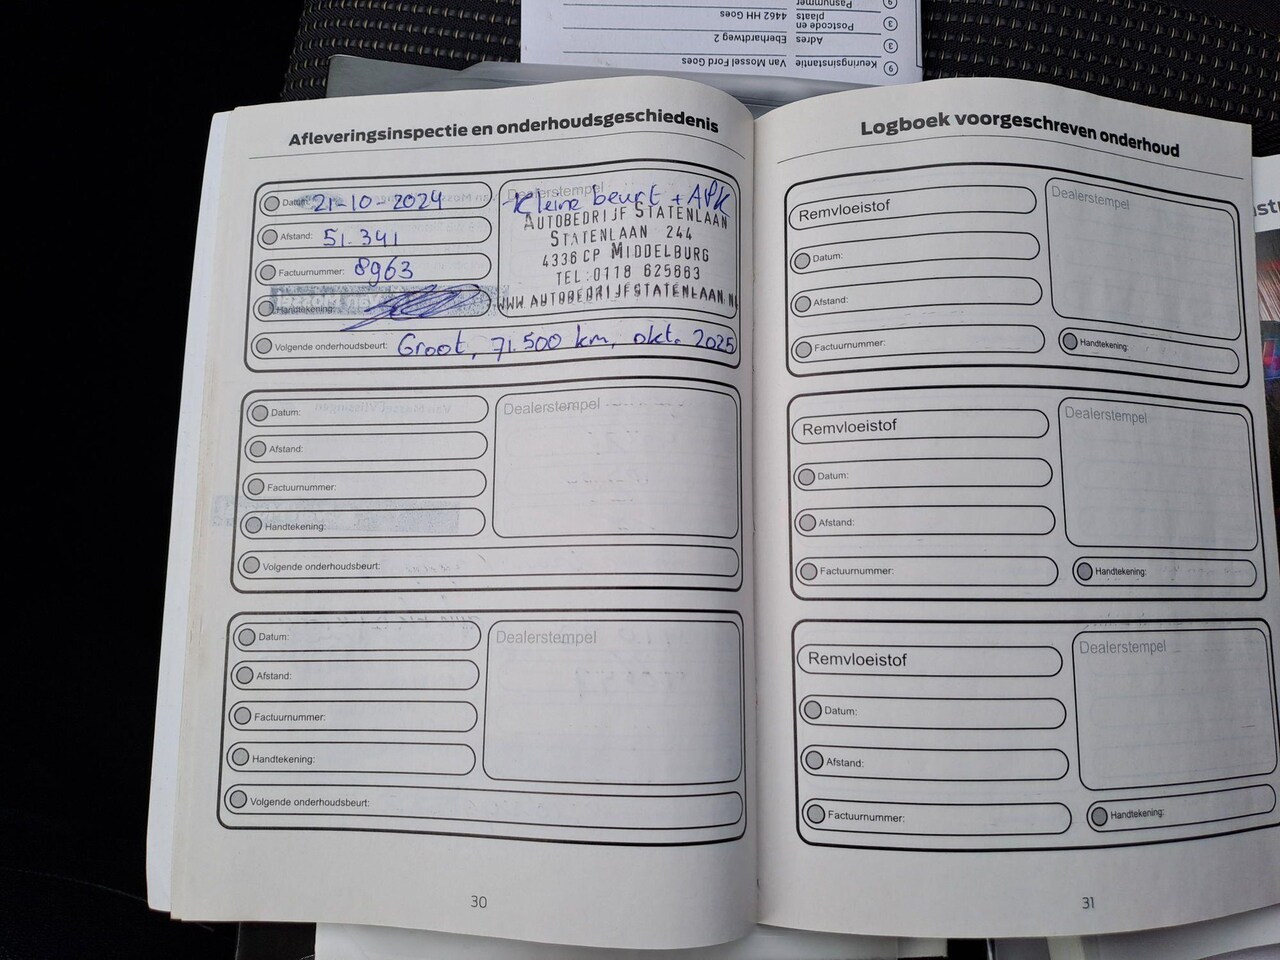 Keuringsinstantie Van Mossel Ford Goes
Adres Eberhardtweg 2
Postcode en plaats 4462 HH Goes
Pasnummer
Afleveringsinspectie en onderhoudsgeschiedenis
Datum: 21-10-2024
Afstand: 51.341
Factuurnummer: 8963
Handtekening:
Dealerstempel
Kleine beurt + APK
AUTOBEDRIJF STATENLAAN
STATENLAAN 244
4336 CP MIDDELBURG
TEL:0118 625863
WWW.AUTOBEDRIJFSTATENLAAN.NL
Volgende onderhoudsbeurt: Groot, 71.500 km, okt. 2025
Datum:
Afstand:
Factuurnummer:
Handtekening:
Dealerstempel
Volgende onderhoudsbeurt:
Datum:
Afstand:
Factuurnummer:
Handtekening:
Dealerstempel
Volgende onderhoudsbeurt:
30
Logboek voorgeschreven onderhoud
Remvloeistof
Datum:
Afstand:
Factuurnummer:
Dealerstempel
Handtekening:
Remvloeistof
Datum:
Afstand:
Factuurnummer:
Dealerstempel
Handtekening:
Remvloeistof
Datum:
Afstand:
Factuurnummer:
Dealerstempel
Handtekening:
31